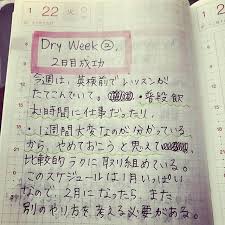 1 22 火
1 23
Dry Week ②,
2日目成功
今週は、英検前でレッスンが
たてこんでいて。・普段飲
む時間に仕事だったり
・1週間大変なのが分かっている
から、やめておこうと思えて
比較的ラクに取り組めている。
このスケジュールは1月いっぱい
なので、2月になったら、また
別のやり方を考える必要がある。